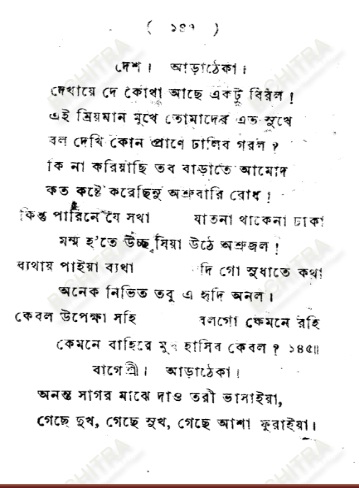 ( ১৪৭ )
দেশ। আড়াঠেকা।
দেখায়ে দে কোথা আছে একটু বিরল!
এই ম্রিয়মান মুখে তোমাদের এত সুখে
বল দেখি কোন প্রাণে ঢালিব গরল?
কি না করিয়াছি তব বাড়াতে আমোদ
কত কষ্টে করেছিনু অশ্রুবারি রোধ!
কিন্তু পারিনে যে সখা যাতনা থাকেনা ঢাকা
মর্ম্ম হ'তে উচ্ছ্বসিয়া উঠে অশ্রুজল!
ব্যথায় পাইয়া ব্যথা দি গো সুধাতে কথা
অনেক নিভিত তবু এ হৃদি অনল।
কেবল উপেক্ষা সহি বলগো কেমনে রহি
কেমনে বাহিরে মু হাসিব কেবল? ১৪৫॥
বাগেশ্রী। আড়াঠেকা।
অনন্ত সাগর মাঝে দাও তরী ভাসাইয়া,
গেছে দুখ, গেছে সুখ, গেছে আশা ফুরাইয়া।